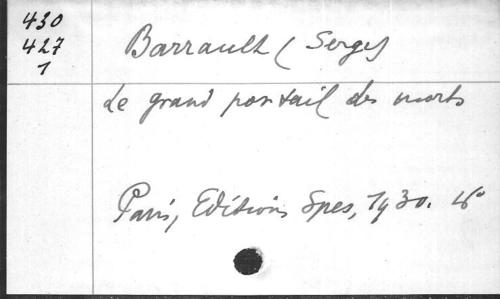 430
427
1
Barrault (Serge)
Le grand portail des morts
Paris, Editions Spes, 1930. 16°